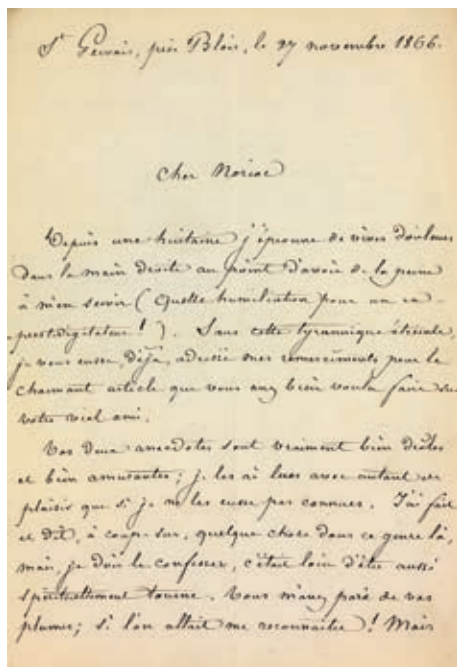 St Gervais, près Blois, le 27 novembre 1866.
Cher Noriac
Depuis une huitaine j'éprouve de vives douleurs
dans la main droite au point d'avoir de la peine
à m'en servir (Quelle humiliation pour un ex-
prestidigitateur!). Sans cette tyrannique
je vous eusse, déjà, adressé mes remerciments pour le
charmant article que vous avez bien voulu faire sur
votre vieil ami.
Vos deux anecdotes sont vraiment bien drôles
et bien amusantes; je les ai lues avec autant de
plaisir que si je ne les eusse pas connues. J'ai fait
et dit, à coup-sur, quelque chose dans ce genre là,
mais, je dois le confesser, c'était loin d'être aussi
spirituellement tourné. Vous m'avez paré de vos
plumes; si l'on allait me reconnaître! Mais